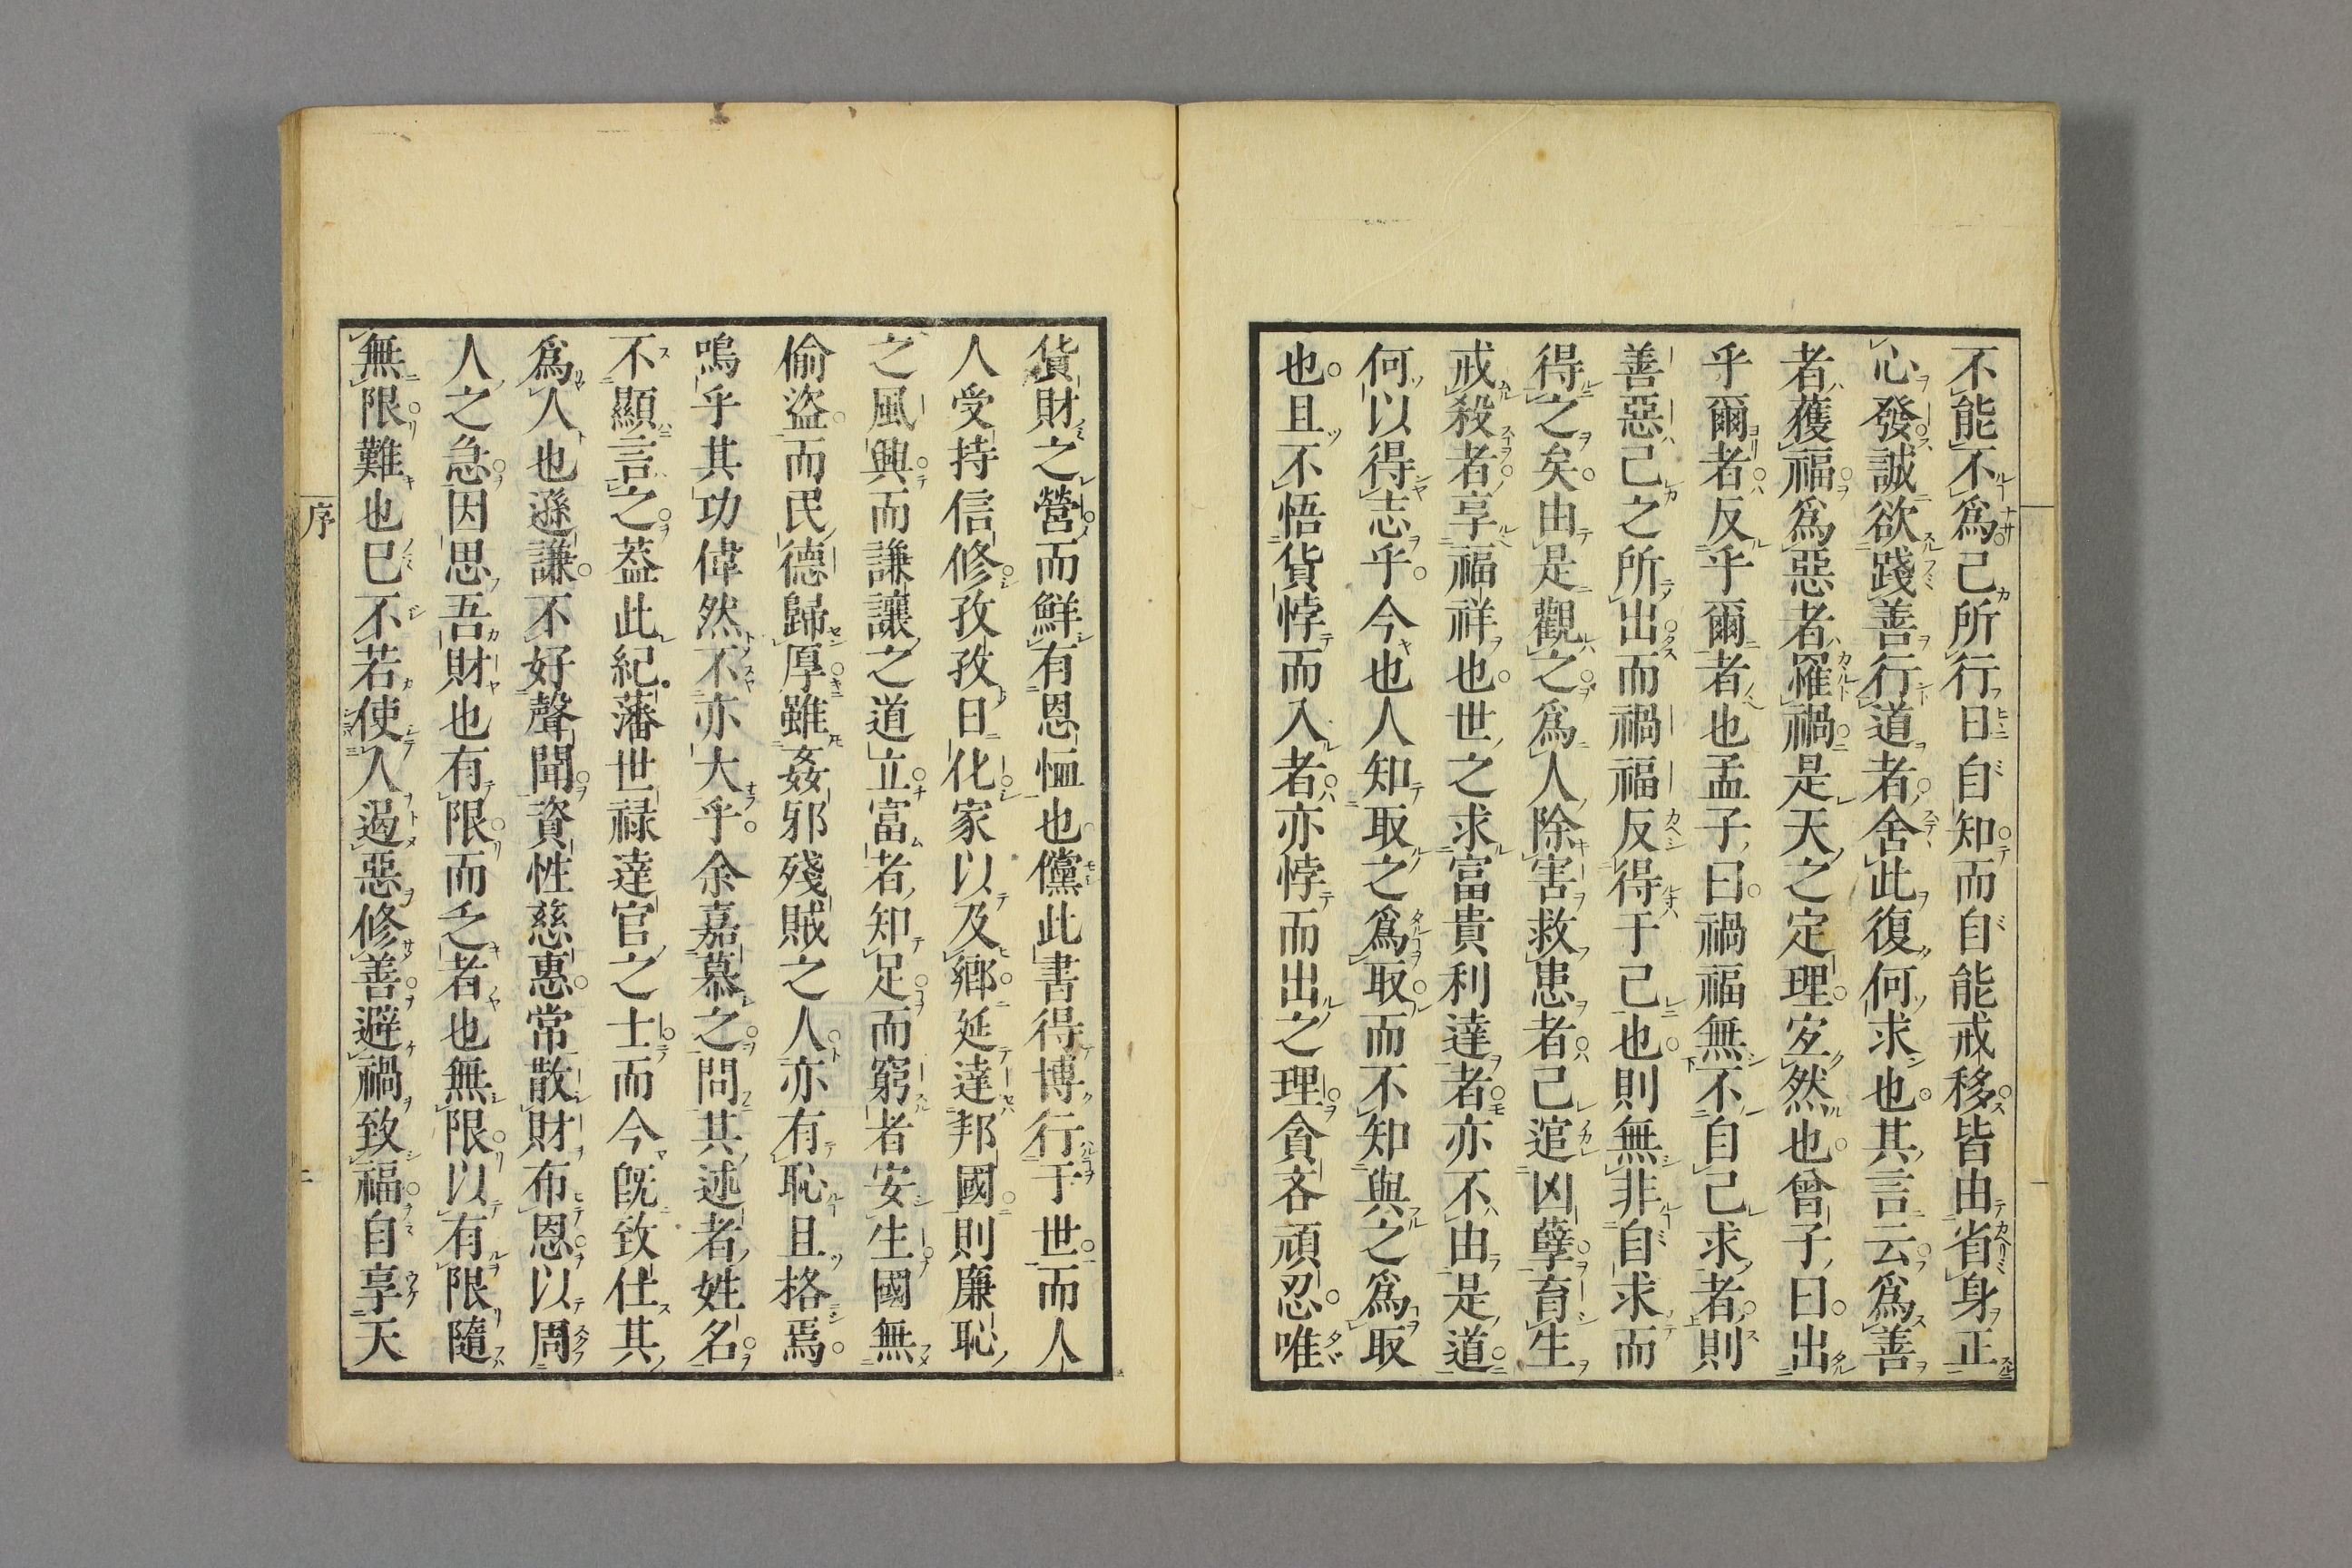 不能不爲己所行日自知而自能戒移皆由省身正
心發誠欲踐善行道者舍此復何求也其言云爲善
者獲福爲惡者罹禍是天之定理㝎然也曾子曰出
乎爾者反乎爾者也孟子曰禍福無不自己求者則
善惡己之所出而禍福反得于己也則無非自求而
得之矣由是觀之爲人除害救患者己逭凶孽育生
戒殺者享福祥也世之求富貴利達者亦不由是道
何以得志乎今也人知取之爲取而不知與之爲取
也且不悟貨悖而入者亦悖而出之理貪吝頑忍唯
貨財之營而鮮有恩恤也儻此書得博行于世而人
人受持信修孜孜日化家以及鄉延達邦國則廉恥
之風興而謙讓之道立富者知足而窮者安生國無
偷盜而民德歸厚雖姦邪殘賊之人亦有恥且格焉
嗚乎其功偉然不亦大乎余嘉慕之問其述者姓名
不顯言之葢此紀藩世祿達官之士而今既致仕其
爲人也遜謙不好聲聞資性慈惠常散財布恩以周
人之急因思吾財也有限而乏者也無限以有限隨
無限難也已不若使人遏惡修善避禍致福自享天
序
二